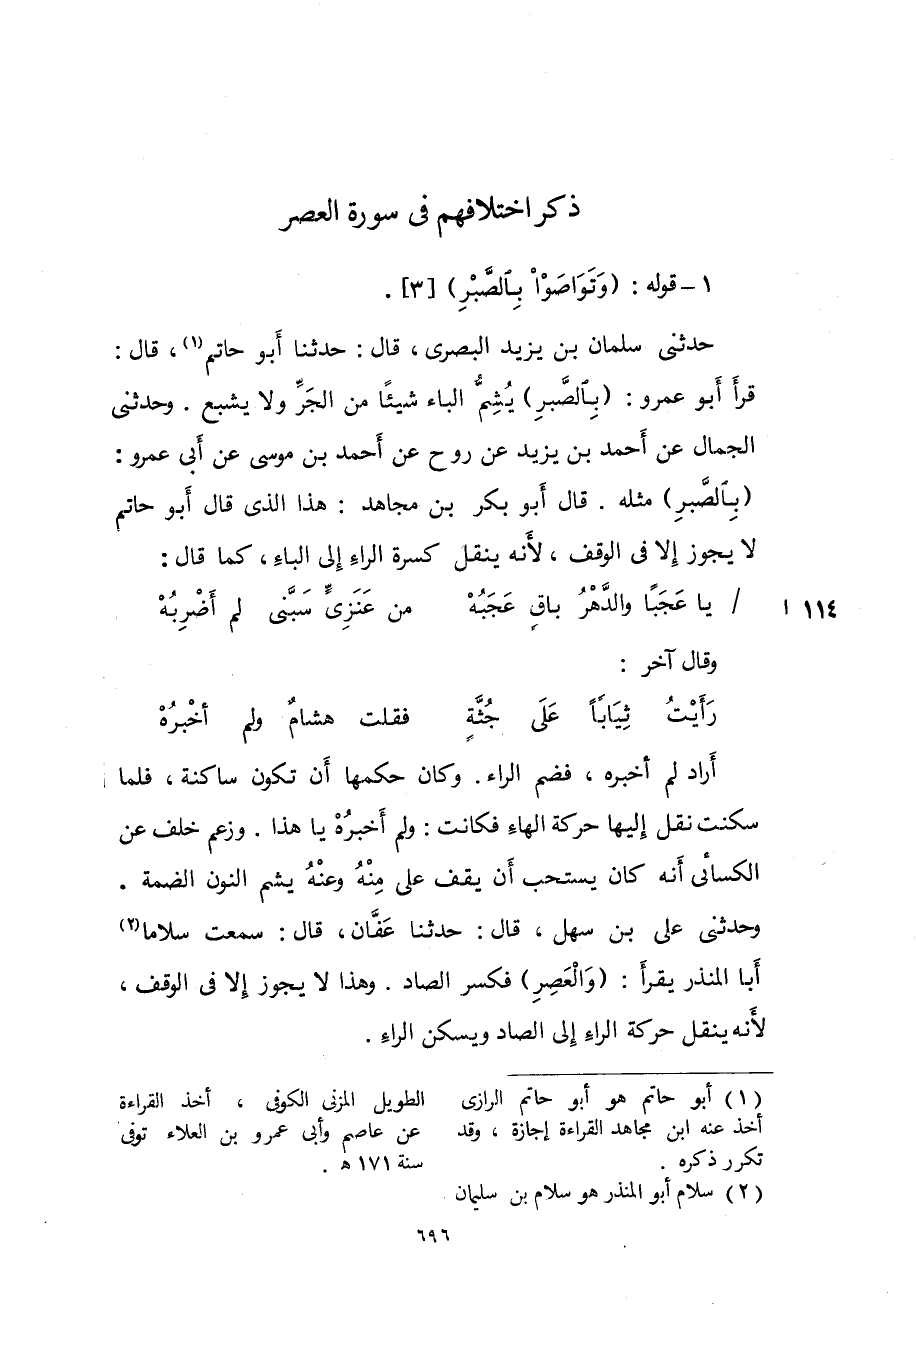 ذكر اختلافهم فى سورة العصر
١ – قوله : (وَتَوَاصَوْاْ بِٱلصَّبْرِ) [٣] .
حدثنى سلمان بن يزيد البصرى ، قال : حدثنا أَبو حاتم(١) ، قال :
قرأَ أَبو عمرو : (بِٱلصَّبِرِ) يُشِمُّ الباء شيئًا من الجَرِّ ولا يشبع . وحدثنى
الجمال عن أَحمد بن يزيد عن روح عن أَحمد بن موسى عن أَبى عمرو :
(بِٱلصَّبِرِ) مثله . قال أَبو بكر بن مجاهد : هذا الذى قال أَبو حاتم
لا يجوز إلا فى الوقف ، لأَنه ينقل كسرة الراءِ إلى الباء ، كما قال :
/ يا عَجَبًا والدَّهْرُ باقٍ عَجَبُهْ من عَنَزِىٍّ سَبَّنى لم أَضْرِبُهْ ١١٤ ا
وقال آخر :
رَأَيْتُ ثِيَاباً عَلَى جُثَّةٍ فقلت هشامٌ ولم أخْبرُهْ
أَراد لم أخبره ، فضم الراء . وكان حكمها أَن تكون ساكنة ، فلما
سكنت نقل إليها حركة الهاءِ فكانت : ولم أَخبرُهْ يا هذا . وزعم خلف عن
الكسائى أَنه كان يستحب أَن يقف على مِنْهُ وعنْهُ يشم النون الضمة .
وحدثنى على بن سهل ، قال : حدثنا عَفَّان ، قال : سمعت سلاما(٢)
أَبا المنذر يقرأَ : (وَالْعَصِرِ) فكسر الصاد . وهذا لا يجوز إلا فى الوقف ،
لأَنه ينقل حركة الراءِ إلى الصاد ويسكن الراءِ .
(١) أبو حاتم هو أبو حاتم الرازى
أخذ عنه ابن مجاهد القراءة إجازة ، وقد
تكرر ذكره .
(٢) سلام أبو المنذر هو سلام بن سليمان
الطويل المزنى الكوفى ، أخذ القراءة
عن عاصم وأبى عمرو بن العلاء توفى
سنة ١٧١ ه .
٦٩٦